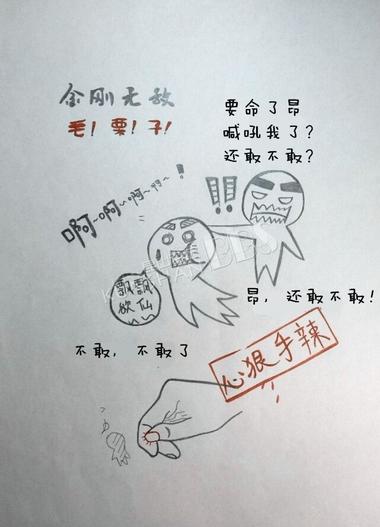 金刚无敌
毛！栗！子！
要命了昂
喊吼我了？
还敢不敢？
啊~啊~啊~啊~！
!!!
飘飘
欲仙
昂，还敢不敢！
不敢，不敢了
心狠手辣